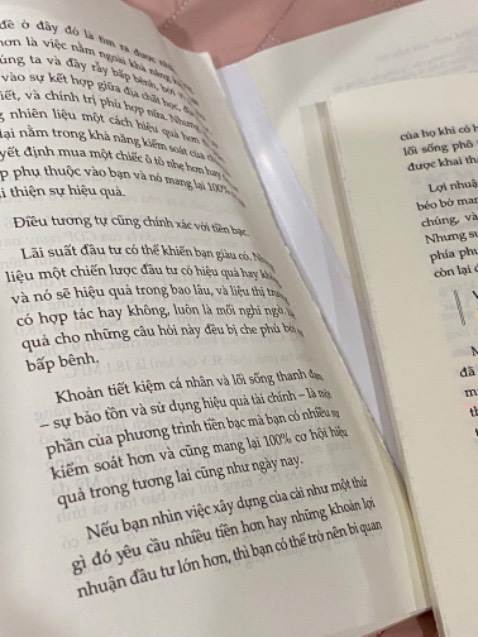 đề ở đây đó là tìm ra được
hơn là việc nằm ngoài khả năng
úng ta và đầy rẫy bấp bênh, bởi
vào sự kết hợp giữa địa chất học,
iết, và chính trị phù hợp nữa. Nhưng
g nhiên liệu một cách hiệu quả hơn
lại nằm trong khả năng kiểm soát của
yết định mua một chiếc ô tô nhẹ hơn hay
p phụ thuộc vào bạn và nó mang lại 100%
i thiện sự hiệu quả.
Điều tương tự cũng chính xác với tiền bạc.
Lãi suất đầu tư có thể khiến bạn giàu có.
liệu một chiến lược đầu tư có hiệu quả hay
và nó sẽ hiệu quả trong bao lâu, và liệu thị
có hợp tác hay không, luôn là mối nghi ngờ.
quả cho những câu hỏi này đều bị che phủ bởi
bấp bênh.
Khoản tiết kiệm cá nhân và lối sống thanh đạm
– sự bảo tồn và sử dụng hiệu quả tài chính – là một
phần của phương trình tiền bạc mà bạn có nhiều sự
kiểm soát hơn và cũng mang lại 100% cơ hội hiệu
quả trong tương lai cũng như ngày nay.
Nếu bạn nhìn việc xây dựng của cải như một thứ
gì đó yêu cầu nhiều tiền hơn hay những khoản lợi
nhuận đầu tư lớn hơn, thì bạn có thể trở nên bi quan
của họ khi có h
lối sống phô
được khai th
Lợi nhuậ
béo bở ma
chúng, và
Nhưng s
phía ph
còn lại
đã
m